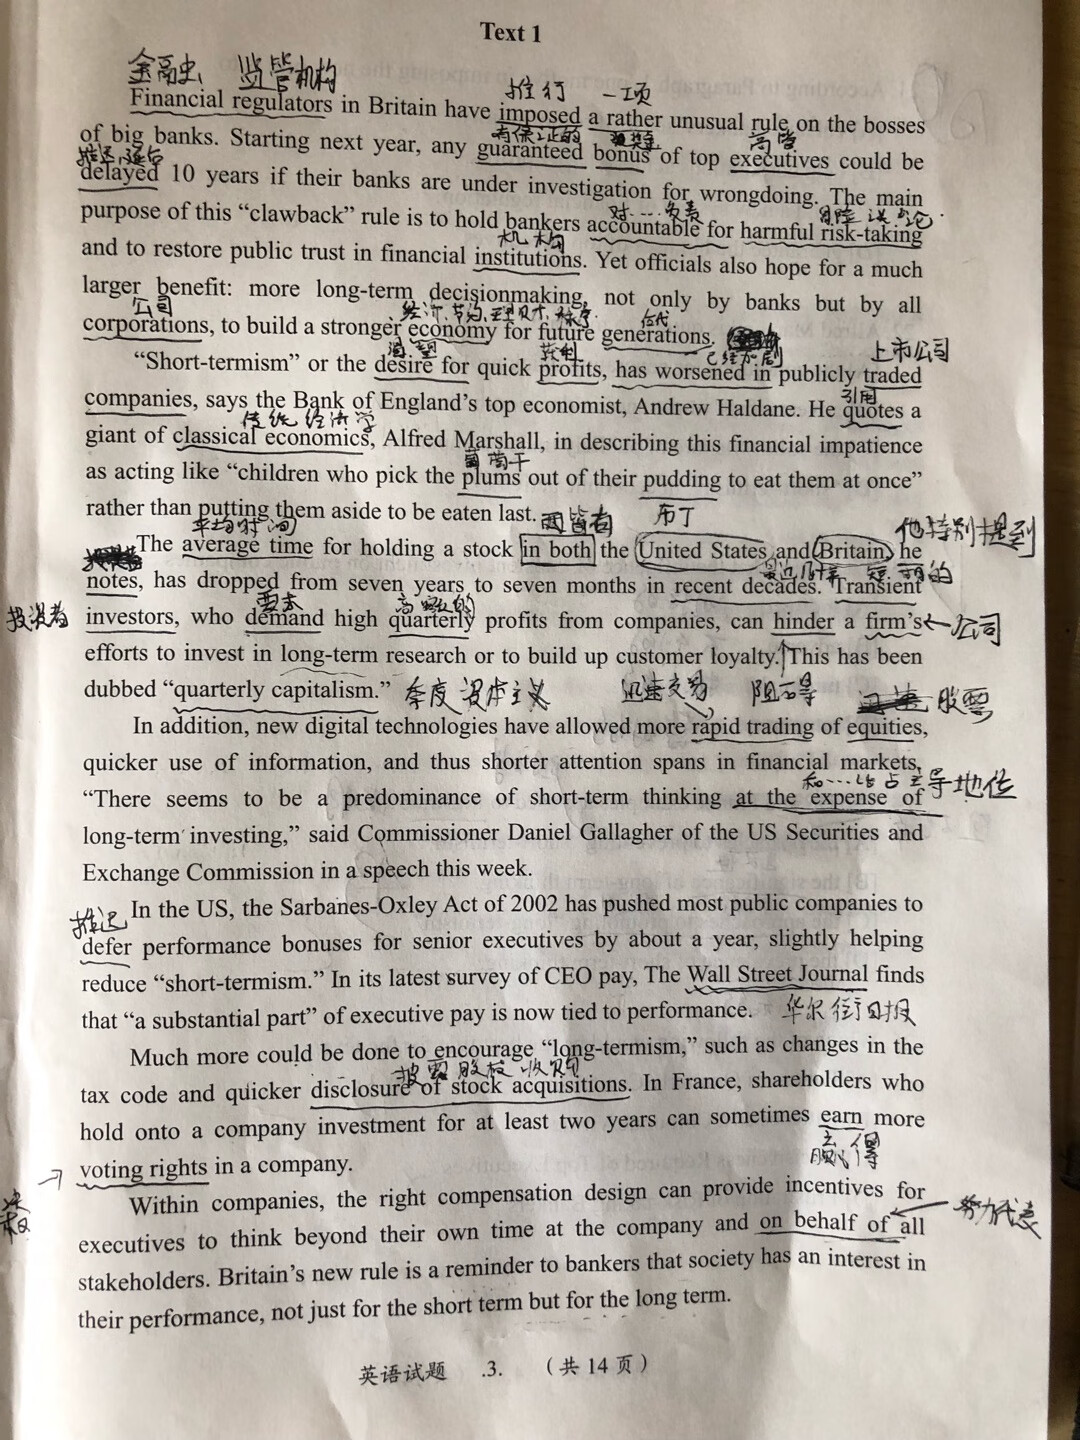 Text 1
金融史 监管机构
推行 一项
Financial regulators in Britain have imposed a rather unusual rule on the bosses
有保证的 奖金 高管
of big banks. Starting next year, any guaranteed bonus of top executives could be
推迟,延后
delayed 10 years if their banks are under investigation for wrongdoing. The main
对……负责
purpose of this “clawback” rule is to hold bankers accountable for harmful risk-taking
机构
and to restore public trust in financial institutions. Yet officials also hope for a much
larger benefit: more long-term decisionmaking, not only by banks but by all
公司 经济、节约、理财、秩序 代
corporations, to build a stronger economy for future generations.
渴望 获利 已经加剧 上市公司
“Short-termism” or the desire for quick profits, has worsened in publicly traded
引用
companies, says the Bank of England’s top economist, Andrew Haldane. He quotes a
传统经济学
giant of classical economics, Alfred Marshall, in describing this financial impatience
葡萄干
as acting like “children who pick the plums out of their pudding to eat them at once”
rather than putting them aside to be eaten last. 两皆有 布丁
平均时间 他特别提到
The average time for holding a stock in both the United States and Britain, he
最近几十年 短暂的
notes, has dropped from seven years to seven months in recent decades. Transient
投资者 要求 高 的
investors, who demand high quarterly profits from companies, can hinder a firm’s 公司
efforts to invest in long-term research or to build up customer loyalty. This has been
dubbed “quarterly capitalism.” 季度资本主义 迅速交易 阻碍 股票
In addition, new digital technologies have allowed more rapid trading of equities,
quicker use of information, and thus shorter attention spans in financial markets,
和…… 占主导地位
“There seems to be a predominance of short-term thinking at the expense of
long-term investing,” said Commissioner Daniel Gallagher of the US Securities and
Exchange Commission in a speech this week.
推迟 In the US, the Sarbanes-Oxley Act of 2002 has pushed most public companies to
defer performance bonuses for senior executives by about a year, slightly helping
reduce “short-termism.” In its latest survey of CEO pay, The Wall Street Journal finds
that “a substantial part” of executive pay is now tied to performance. 华尔街日报
Much more could be done to encourage “long-termism,” such as changes in the
披露股权收购
tax code and quicker disclosure of stock acquisitions. In France, shareholders who
hold onto a company investment for at least two years can sometimes earn more
赢得
voting rights in a company.
Within companies, the right compensation design can provide incentives for
努力代表
executives to think beyond their own time at the company and on behalf of all
stakeholders. Britain’s new rule is a reminder to bankers that society has an interest in
their performance, not just for the short term but for the long term.
英语试题 .3. （共 14 页）